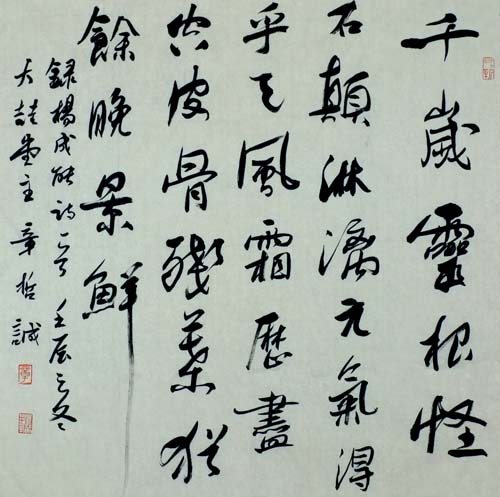 千歲靈根怪
石顛淋漓元氣得
乎天風霜歷盡
空皮骨殘葉猶
餘晚景鮮
錄楊成能詩一首 壬辰之冬
大喆堂主章哲誠